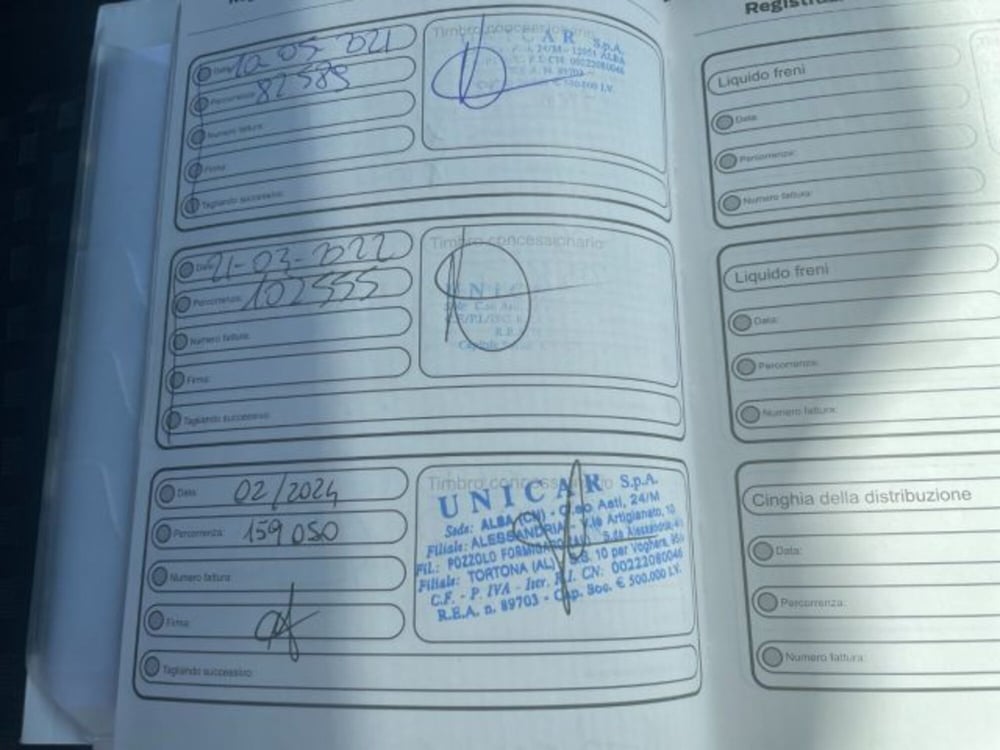 Data: 10-05-2021
Percorrenza: 82589
Numero fattura:
Firma:
Tagliando successivo:
Timbro concessionario
UNICAR S.p.A.
24/M - 12051 ALBA
00222080046
89703
€ 500.000 I.V.
Data: 21-03-2022
Percorrenza: 102555
Numero fattura:
Firma:
Tagliando successivo:
Timbro concessionario
UNICAR
Data: 02/2024
Percorrenza: 159050
Numero fattura:
Firma:
Tagliando successivo:
Timbro concessionario
UNICAR S.p.A.
Sede: ALBA (CN) - C.so Asti, 24/M
Filiale: ALESSANDRIA - V.le Artigianato, 10
Fil.: POZZOLO FORMIGARO (AL) S.da Alessandria
Filiale: TORTONA (AL) S.S. 10 per Voghera
C.F. - P. IVA - Iscr. R.I. CN. 00222080046
R.E.A. n. 89703 - Cap. Soc. € 500.000 I.V.
Liquido freni
Data:
Percorrenza:
Numero fattura:
Liquido freni
Data:
Percorrenza:
Numero fattura:
Cinghia della distribuzione
Data:
Percorrenza:
Numero fattura: